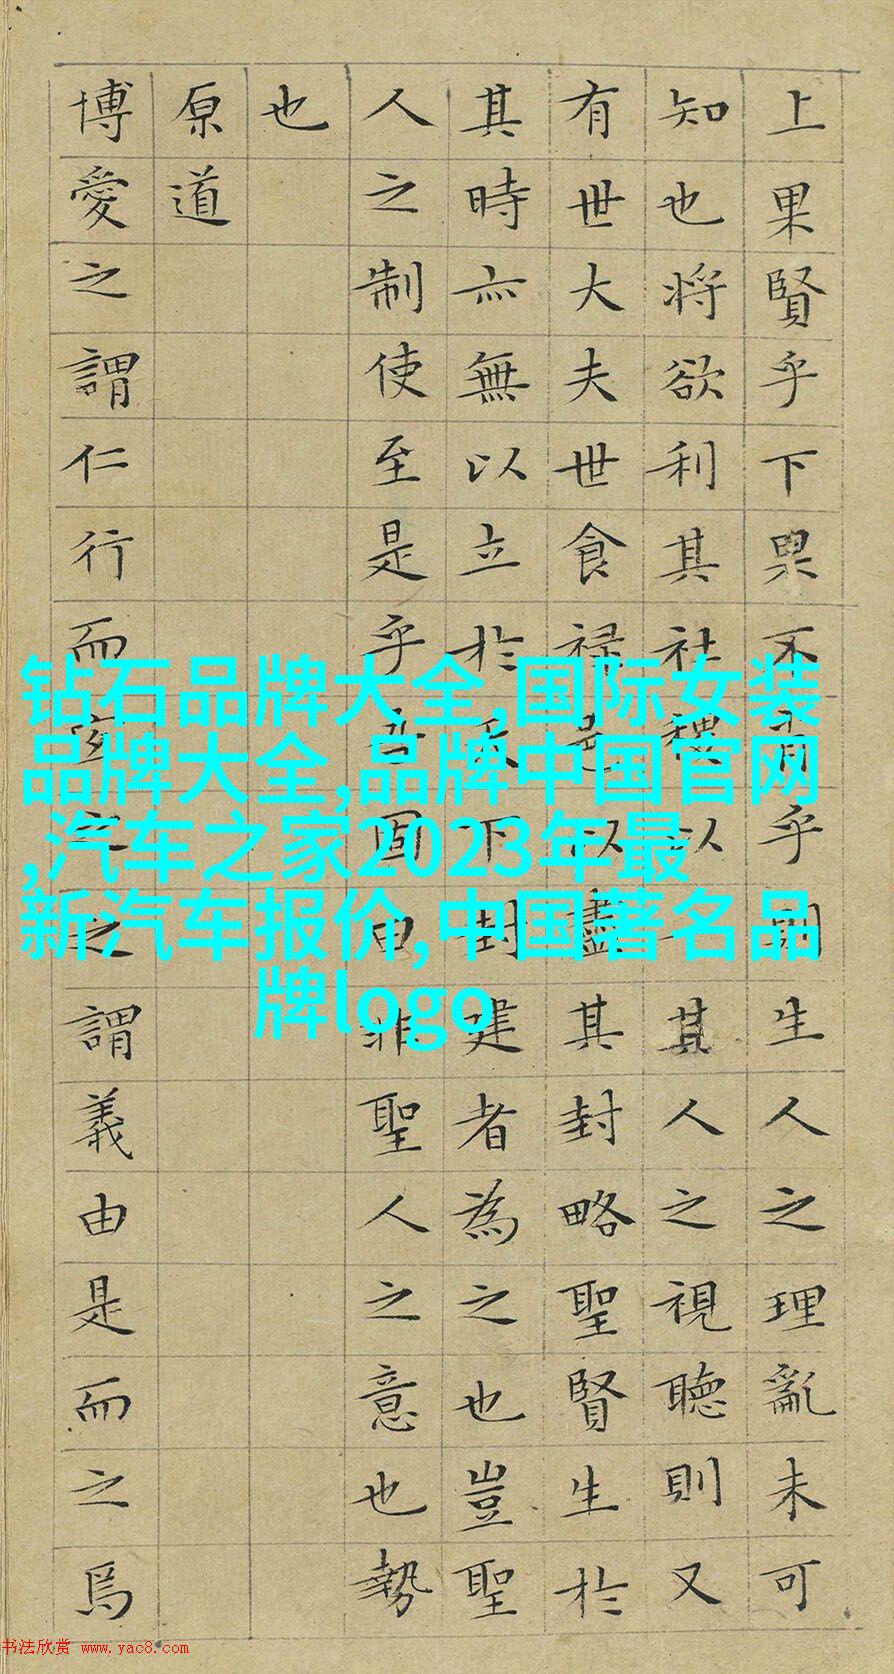 上果賢乎下果不肖乎則生人之理亂未可
知也將欲利其社稷以一其人之視聽則又
有世大夫世食祿邑以盡其封略聖賢生於
其時亦無以立於天下封建者為之也豈聖
人之制使至是乎吾固曰非聖人之意也勢
也
原道
博愛之謂仁行而宜之之謂義由是而之焉
钻石品牌大全,国际女装
品牌大全,品牌中国官网
,汽车之家2023年最
新汽车报价,中国著名品
牌logo
书法欣赏 www.yac8.com